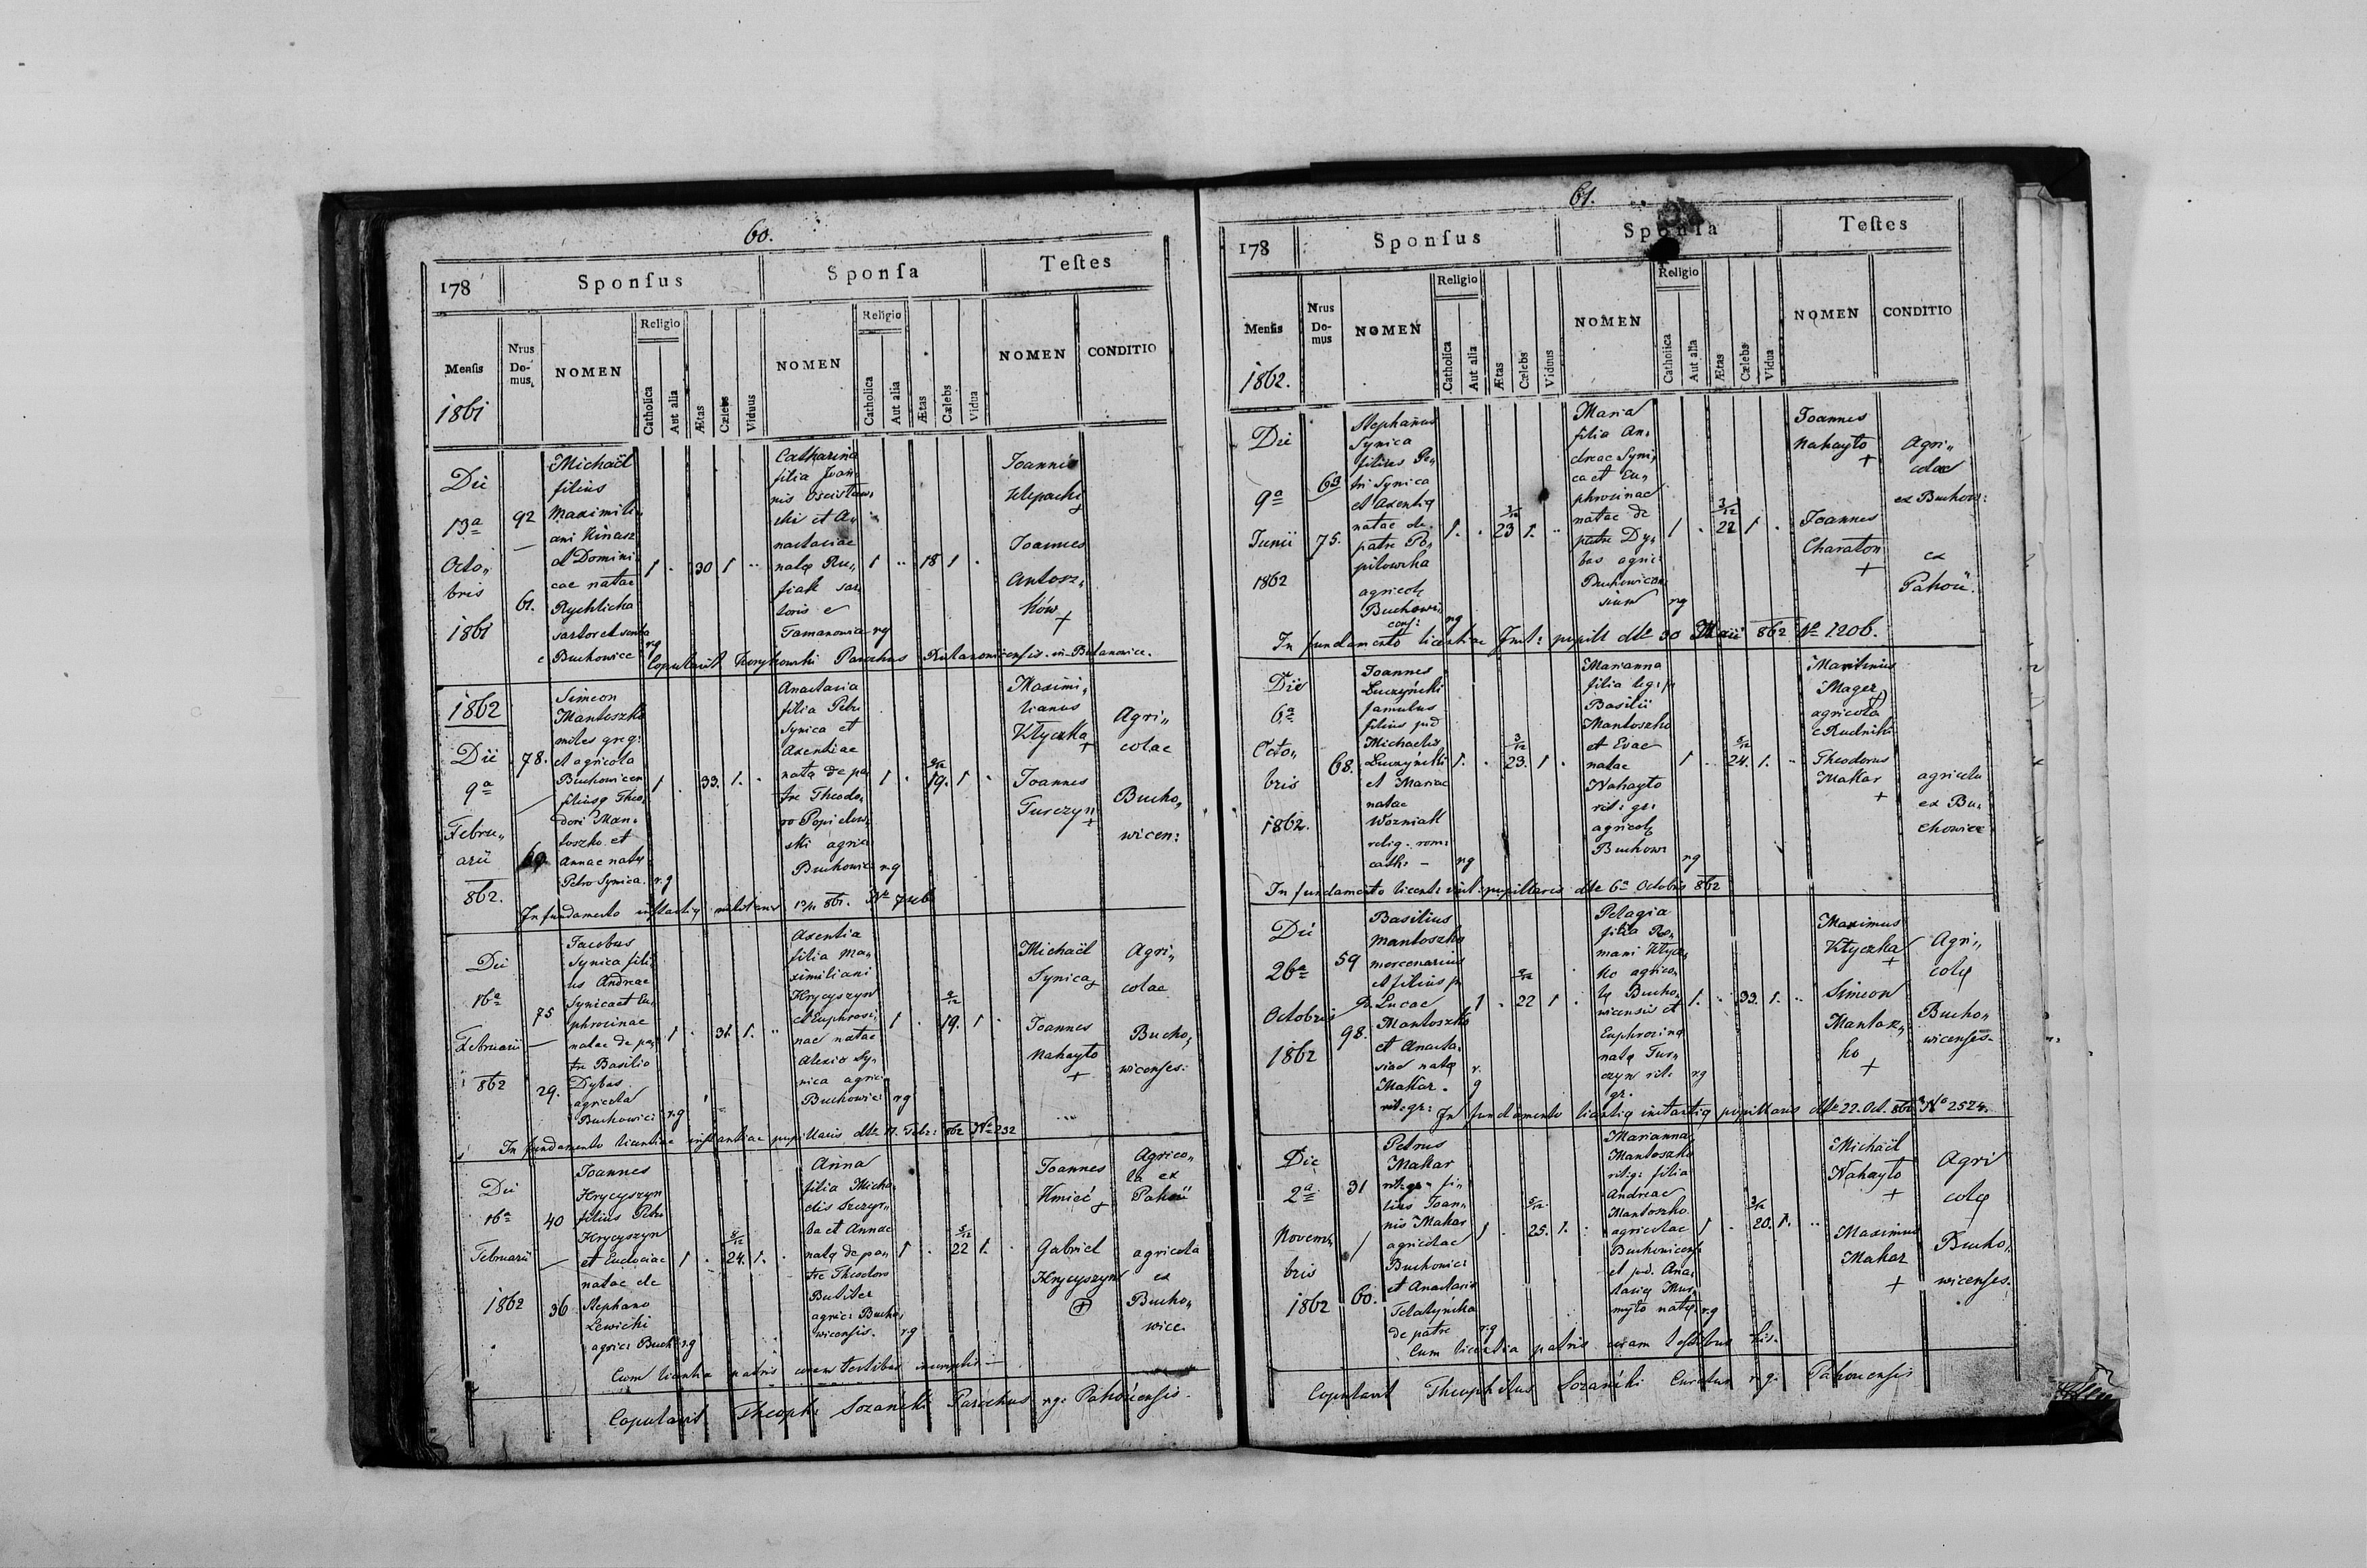 60.
178 Sponſus Sponſa Teſtes
Menſis Nrus Do- mus. NOMEN Religio Catholica Aut alia Ætas Cœlebs Viduus NOMEN Religio Catholica Aut alia Ætas Cœlebs Vidua NOMEN CONDITIO
1861
Die
13a
Octo„
bris
1861
92
61.
Michaël
filius
Maximili„
ani Kinasz
et Domini
cae natae
Rychlicka
sartor et
e Buchowice rg
1 . 30 1 ..
Catharina
filia Joan„
nis
ski et A„
nastasiae
natę Ru„
fiak sar
toris e
Tamanowice rg
1 .. 18 1 .
Joannes
Joannes
Antosz„
ków
+
Copulavit Parochus
1862
Die
9a
Febru„
arii
862.
78.
Simeon
Mantoszko
miles greg:
et agricola
Buchowicen
filius Theo,
dori Man„
toszko et
Annae natę
Petro Synica. r.g
1 . 33. 1. .
Anastasia
filia Petri
Synica et
Axentiae
natę de pa
tre Theodo„
ro Popielow„
ski agric
Buchowic rg
1 . 19. 1 .
Maximi„
lianus
Kłyczka
+
Joannes
Turczyn
+
Agri„
colae
Bucho„
wicen:
In fundamento
Die
16a
Februarii
862
75
29.
Jacobus
Synica fili
us Andreae
Synica et Eu„
phrosinae
natae de pa„
tre Basilio
Dybas
agricola
Buchowic: r.g
1 . 31. 1. ..
Axentia
filia Ma„
ximiliani
Hrycyszyn
et Euphrosi„
nae natae
Alexio Sy„
nica agric
Buchowic: rg
1 . 19. 1 .
Michaël
Synica
+
Joannes
Nahayło
+
Agri„
colae
Bucho„
wicenses:
In fundamento licentiae instantiae pupillaris dtto Febr: 862 No 232
Die
16a
Februarii
1862
40
36
Joannes
Hrycyszyn
filius Petri
Hrycyszyn
et Eudociae
natae de
Stephano
Lewicki
agric: Buch r.g
1 . 24. 1. .
5/12
Anna
filia Micha
elis Szczyr„
ba et Annae
natę de pa„
tre Theodoro
Butiter
agric: Bucho„
wicensis. r.g
1 . 22 1. .
5/12
Joannes
Kmieć
+
Gabriel
Hrycyszyn
+
Agrico„
la ex
Pahoń
agricola
ex
Bucho„
wice
Cum licentia patris coram testibus
Copulavit Theoph: Sozański Parochus rg: Pahonensis.
61.
178 Sponſus Sponſa Teſtes
Menſis Nrus Do- mus NOMEN Religio Catholica Aut alia Ætas Cœlebs Viduus NOMEN Religio Catholica Aut alia Ætas Cœlebs Vidua NOMEN CONDITIO
1862.
Die
9a
Junii
1862
63
75.
Stephanus
Synica
filius Pe„
tri Synica
et Axentię
natae de
patre Po„
pilowska
agricolę
Buchowi„
cens: rg
1. . 23 1. ..
3/12
Maria
filia An„
dreae Syni„
ca et Eu„
phrosinae
natae de
patre Dy„
bas agric
Buchowicen
sium rg
1 . 22 1 .
3/12
Joannes
Nahayło
+
Joannes
Charaton
+
Agri„
colae
ex Buchow:
ex
Pahoń.
In fundamento licentiae Inst: pupill dtto 30 Maii 862 No 1206.
Die
6a
Octo„
bris
1862.
68.
Joannes
Luczyński
famulus
filius pud
Michaelis
Luczyński
et Mariae
natae
Wozniak
relig. rom:
cath: – rg
1. . 23. 1 .
3/12
Marianna
filia leg:
Basilii
Mantoszko
et Evae
natae
Nahayło
rit: gr:
agricolę
Buchow: rg
1 . 24. 1. ..
5/12
Martinus
Mager
+
agricola
e Rudniki
Theodorus
Makar
+
agricola
ex Bu„
chowice
In fundamento licent: inst: pupillaris dtto 6a Octobris 862
Die
26a
Octobris
1862
59
98.
Basilius
Mantoszko
mercenarius
et filius p.
D. Lucae
Mantoszko
et Anasta„
siae natę
Makar. r.
rit: gr: g
1 . 22 1 .
Pelagia
filia Ro„
mani Kłycz„
ko agrico„
lę Bucho„
wicensis et
Euphrosinę
natę Tur„
czyn rit: rg
gr.
1. . 33. 1. ..
Maximus
Kłyczka
+
Simeon
Mantosz„
ko
+
Agri„
colę
Bucho„
wicenses.
In fundamento licentię instantię pupillaris dtto 22. Oct. 862 No 2524.
Die
2a
Novem„
bris
1862
31
60.
Petrus
Makar
rit: gr: fi„
lius Joan„
nis Makar
agricolae
Buchowic:
et Anastasiae
Telatyńska
de patre r.g
1 . 25. 1. .
5/12
Marianna
Mantoszko
rit: g: filia
Andreae
Mantoszko
agricolae
Buchowicens
et pud. Ana„
stasię Mur„
myło natę r.g
1 . 20. 1. ..
3/12
Michaël
Nahayło
+
Maximus
Makar
+
Agri
colę
Bucho„
wicenses.
Cum licentia patris coram testibus his.
Copulavit Theophilus Sozański Curatus r.g: Pahonensis